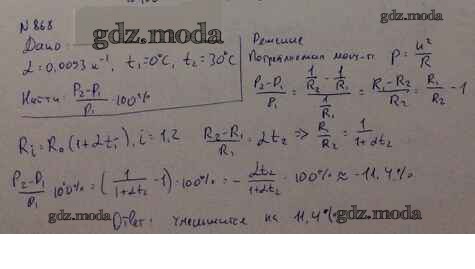 N 868
gdz.moda
Дано:
α = 0,0043 К⁻¹, t₁ = 0°C, t₂ = 30°C
Найти: (P₂-P₁)/P₁ · 100%
Решение
Потребляемая мощ-ть P = U²/R
gdz.moda
(P₂-P₁)/P₁ = (1/R₂ - 1/R₁)/(1/R₁) = (R₁-R₂)/R₂ = R₁/R₂ - 1
Rᵢ = R₀(1+αtᵢ), i = 1,2 (R₂-R₁)/R₁ = αt₂ => R₁/R₂ = 1/(1+αt₂)
(P₂-P₁)/P₁ 100% = (1/(1+αt₂) - 1) · 100% = - αt₂/(1+αt₂) · 100% ≈ -11,4%
gdz.moda
gdz.moda
Ответ: уменьшится на 11,4%
gdz.moda